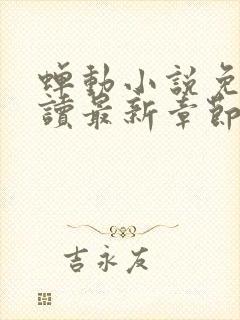 蟬動小説免
讀最新章節
吉永友